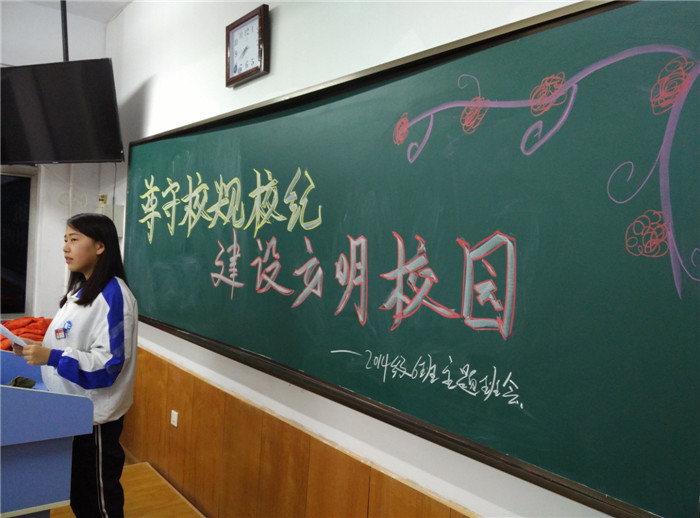 尊守校规校纪
建设文明校园
——2014级6班主题班会.